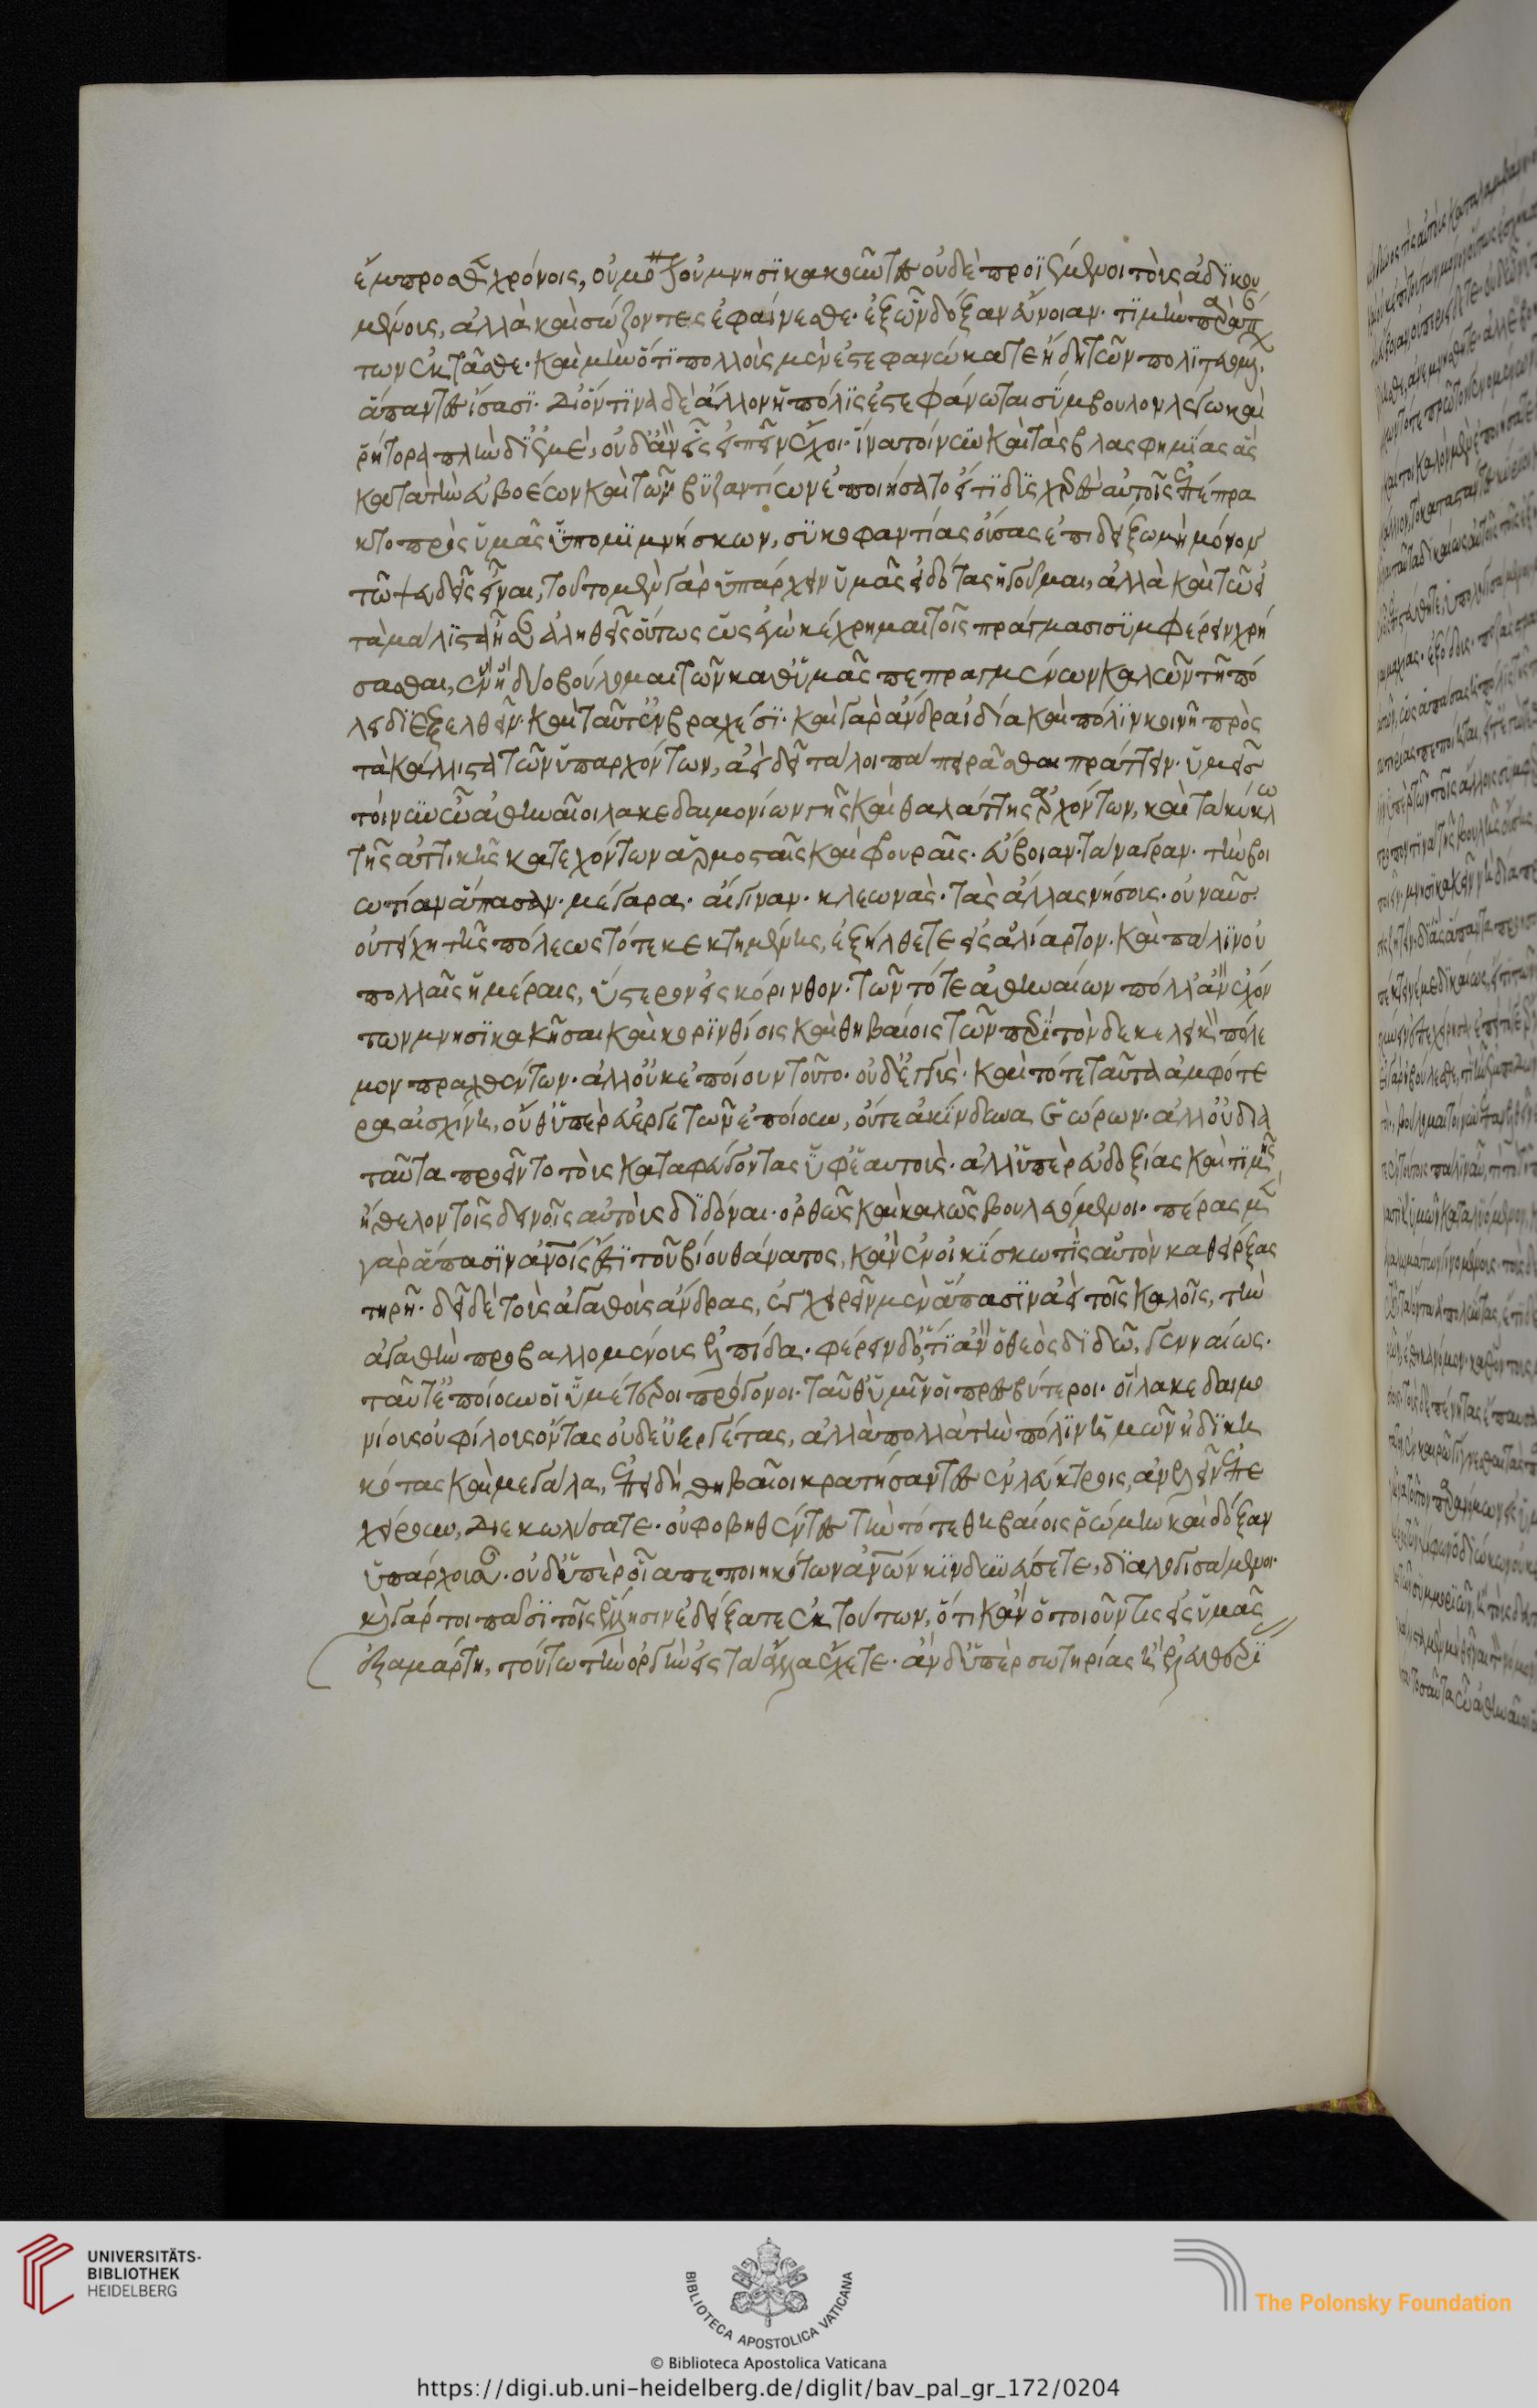 ἔμπροσθε χρόνοις, οὐ μόνον οὐ μνησϊκακοῦντες οὐδὲ προϊέμενοι τοὺς ἀδϊκου
μένους, ἀλλὰ καὶ σώζοντες ἐφαίνεσθε· ἐξ ὧν δόξαν εὔνοιαν· τϊμὴν παρὰ πάν
των ἐκτᾶσθε· καὶ μὴν ὅτϊ πολλοὺς μὲν ἐστεφανώκατε ἤδη τῶν πολϊτευομ,
ἅπαντες ἴσασϊ· δι' ὅντϊνα δὲ ἄλλον ἡ πόλϊς ἐστεφάνωται σύμβουλον λέγω καὶ
ῥήτορα πλὴν δϊ' ἐμὲ, οὐδ' ἂν εἷς εἰπεῖν ἔχοι· ἵνα τοίνυν καὶ τὰς βλασφημΐας ἃς
κατὰ τῶν εὐβοέων καὶ τῶν βϋζαντίων ἐποιήσατο εἴ τϊ δϋσχερὲς αὐτοῖς ἐπέπρα
κτο πρὸς ὑμᾶς ὑπομϊμνήσκων, σϋκοφαντίας οὔσας ἐπιδείξω μὴ μόνον
τῶ ψευδεῖς εἶναι, τοῦτο μὲν γὰρ ὑπάρχειν ὑμᾶς εἰδότας ἡγοῦμαι, ἀλλὰ καὶ τῶ εἰ
τὰ μάλϊστα ἦσαν ἀληθεῖς οὕτως ὡς ἐγὼ κέχρημαι τοῖς πράγμασι συμφέρειν χρή
σασθαι, ἓν ἢ δύο βούλομαι τῶν καθ' ὑμᾶς πεπραγμένων καλῶν τῆ πό
λει δϊεξελθεῖν· καὶ ταῦτ' ἐν βραχέσϊ· καὶ γὰρ ἄνδρα ἰδία καὶ πόλϊν κοινῆ πρὸς
τὰ κάλλιστα τῶν ὑπαρχόντων, ἀεὶ δεῖ τὰ λοιπὰ πειρᾶσθαι πράττειν· ὑμεῖς
τοίνυν ὦ ἀθηναῖοι λακεδαιμονίων γῆς καὶ θαλάττης ἀρχόντων, καὶ τὰ κύκλω
τῆς ἀττικῆς κατεχόντων ἁρμοσταῖς καὶ φρουραῖς· εὔβοιαν· τάναγραν· τὴν βοι
ωτίαν ἅπασαν· μέγαρα· αἴγιναν· κλεωνὰς· τὰς ἄλλας νήσους· οὐ ναῦς·
οὐ τείχη τῆς πόλεως τότε κεκτημένης, ἐξήλθετε εἰς ἁλίαρτον. καὶ πάλϊν οὐ
πολλαῖς ἡμέραις, ὕστερον εἰς κόρινθον· τῶν τότε ἀθηναίων πόλλ' ἂν ἐχόν
των μνησϊκακῆσαι καὶ κορϊνθίοις καὶ θηβαίοις τῶν περϊ τὸν δεκελεικὸν πόλε
μον πραχθέντων· ἀλλ' οὐκ ἐποίουν τοῦτο· οὐδ' ἐγγὺς· καὶ τότε ταῦτα ἀμφότε
ρα αἰσχίνη, οὔθ' ὑπὲρ εὐεργετῶν ἐποίουν, οὔτε ἀκίνδυνα ἑώρων· ἀλλ' οὐ διὰ
ταῦτα προεῖντο τοὺς καταφεύγοντας ὑφ' ἑαυτοὺς· ἀλλ' ὑπὲρ εὐδοξίας καὶ τϊμῆς
ἤθελον τοῖς δεινοῖς αὑτοὺς δϊδόναι· ὀρθῶς καὶ καλῶς βουλευόμενοι· πέρας μὲν
γὰρ ἅπασϊν ἀνοις ἐστϊ τοῦ βίου θάνατος, κἂν ἐν οἰκΐσκω τϊς αὑτὸν καθείρξας
τηρῆ· δεῖ δὲ τοὺς ἀγαθοὺς ἄνδρας, ἐγχειρεῖν μὲν ἅπασϊν ἀεὶ τοῖς καλοῖς, τὴν
ἀγαθὴν προβαλλομένους ἐλπίδα· φέρειν δ' ὅ,τϊ ἂν ὁ θεὸς δϊδῶ, γενναίως·
ταῦτ' ἐποίουν οἱ ὑμέτεροι πρόγονοι· ταῦθ' ὑμῖν οἱ πρεσβύτεροι· οἳ λακεδαιμο
νίους οὐ φίλους ὄντας οὐδ' εὐεργέτας, ἀλλὰ πολλὰ τὴν πόλϊν ἡμῶν ἠδϊκη
κότας καὶ μεγάλα, ἐπειδὴ θηβαῖοι κρατήσαντες ἐν λεύκτροις, ἀνελεῖν ἐπε
χείρουν, διεκωλύσατε· οὐ φοβηθέντες τὴν τότε θηβαίοις ῥώμην καὶ δόξαν
ὑπάρχουσαν· οὐδ' ὑπὲρ οἷα πεποιηκότων ἀνων κϊνδυνεύσετε, δϊαλογισάμενοι·
καὶ γάρ τοι πᾶσϊ τοῖς ἕλλησιν ἐδείξατε ἐκ τούτων, ὅτι κἂν ὁτιοῦν τις εἰς ὑμᾶς
ἐξαμάρτη, τούτω τὴν ὀργὴν εἰς τὰ ἄλλα ἔχετε· ἂν δ' ὑπὲρ σωτηρίας ἢ ἐλευθερϊ
UNIVERSITÄTS-
BIBLIOTHEK
HEIDELBERG
BIBLIOTECA APOSTOLICA VATICANA
The Polonsky Foundation
© Biblioteca Apostolica Vaticana
https://digi.ub.uni-heidelberg.de/diglit/bav_pal_gr_172/0204